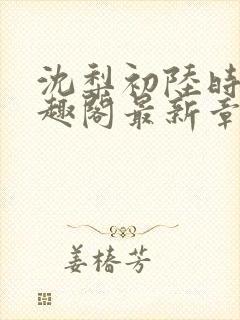 沈梨初陸時
趣閣最新章
姜椿芳